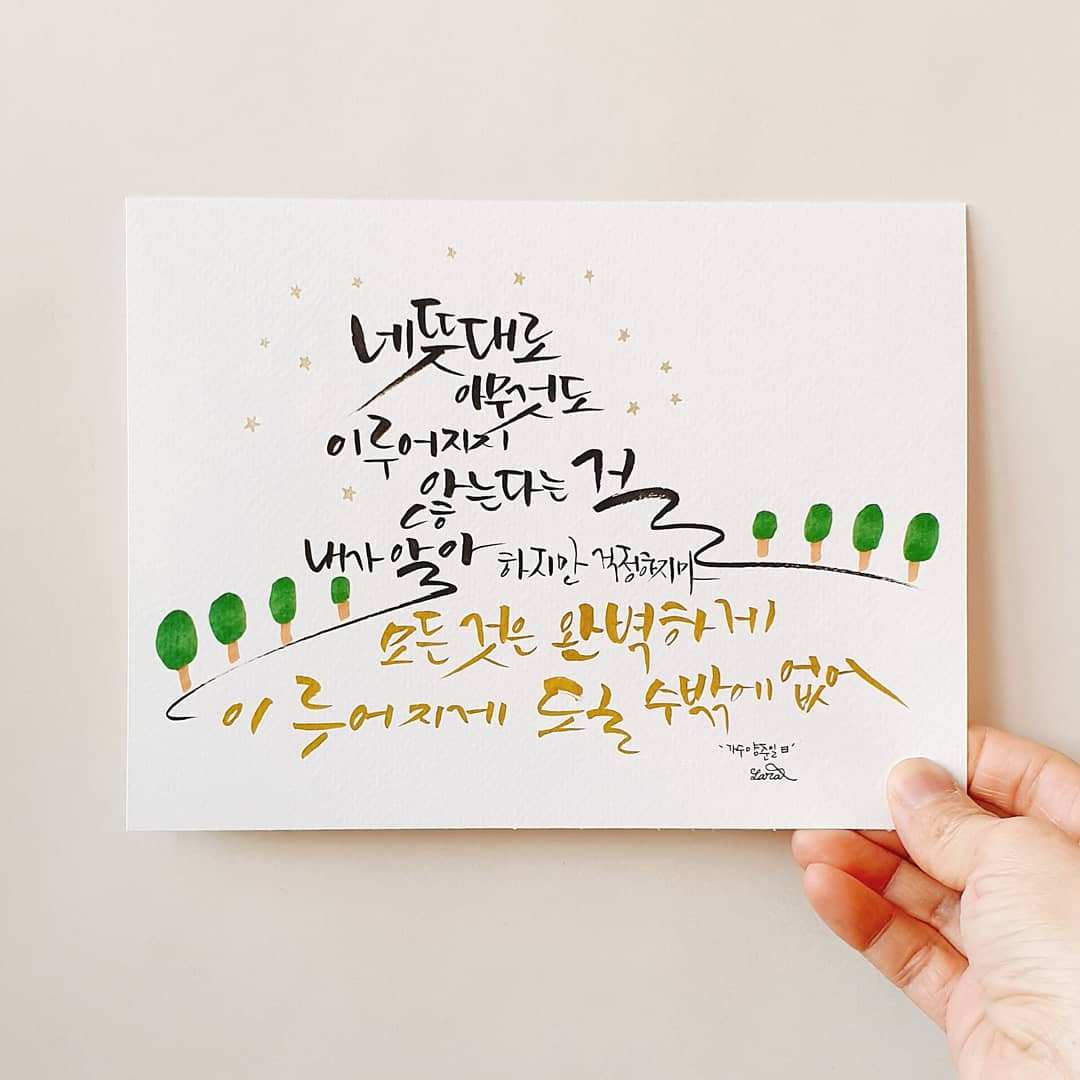 네 뜻대로
아무것도
이루어지지
않는다는 걸
내가 알아 하지만 걱정하지마
모든 것은 완벽하게
이루어지게 될 수밖에 없어
'가수 양준일 曰'
Lara